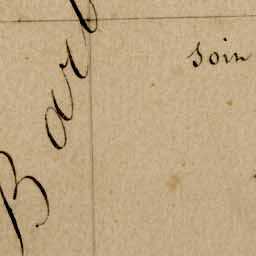 Bar
soin